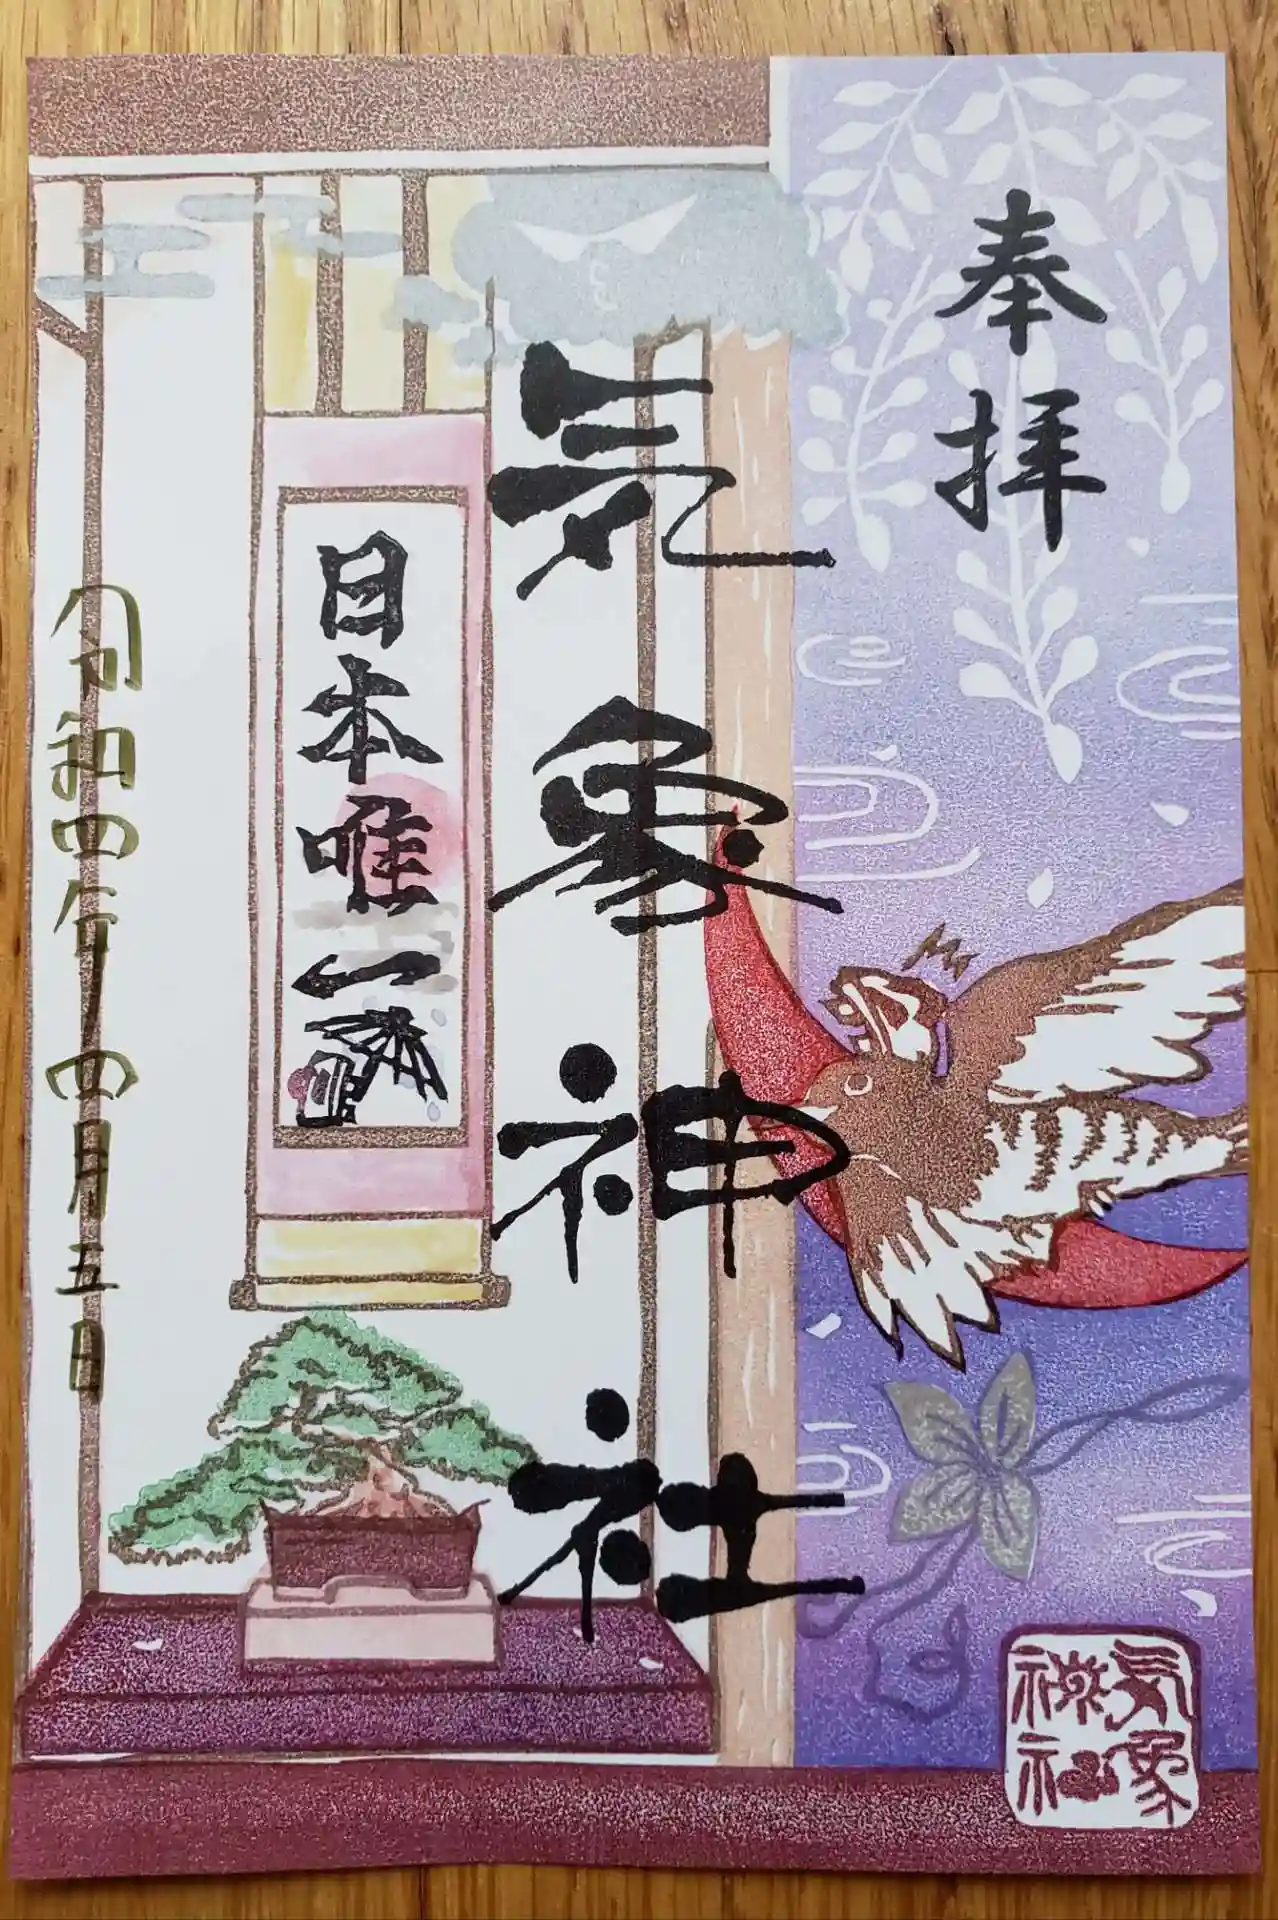 奉拝
気象神社
日本唯一
令和四年四月五日
気象
神社